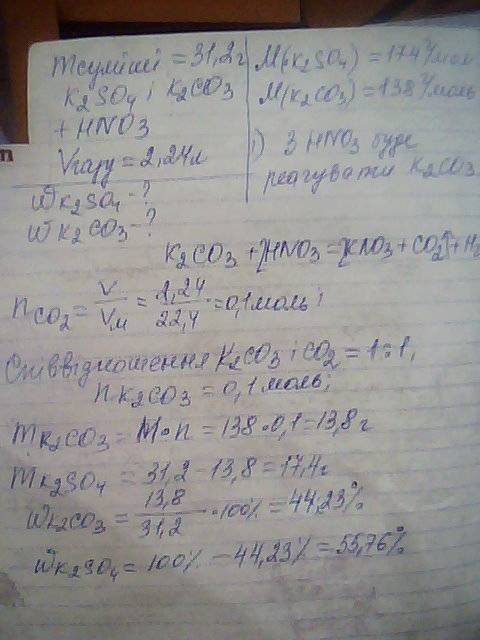 mсуміші = 31,2г
K2SO4 і K2CO3
+ HNO3
Vгазу = 2,24л
WK2SO4 - ?
WK2CO3 - ?
M(K2SO4) = 174 г/моль
M(K2CO3) = 138 г/моль
1) З HNO3 буде
реагувати K2CO3
K2CO3 + 2HNO3 = 2KNO3 + CO2↑ + H2
nCO2 = V/Vм = 2,24/22,4 = 0,1моль;
Співвідношення K2CO3 і CO2 = 1:1,
nK2CO3 = 0,1моль;
mK2CO3 = M•n = 138•0,1=13,8г
mK2SO4 = 31,2 - 13,8 = 17,4г
WK2CO3 = 13,8/31,2 •100% = 44,23%
WK2SO4 = 100% - 44,23% = 55,76%